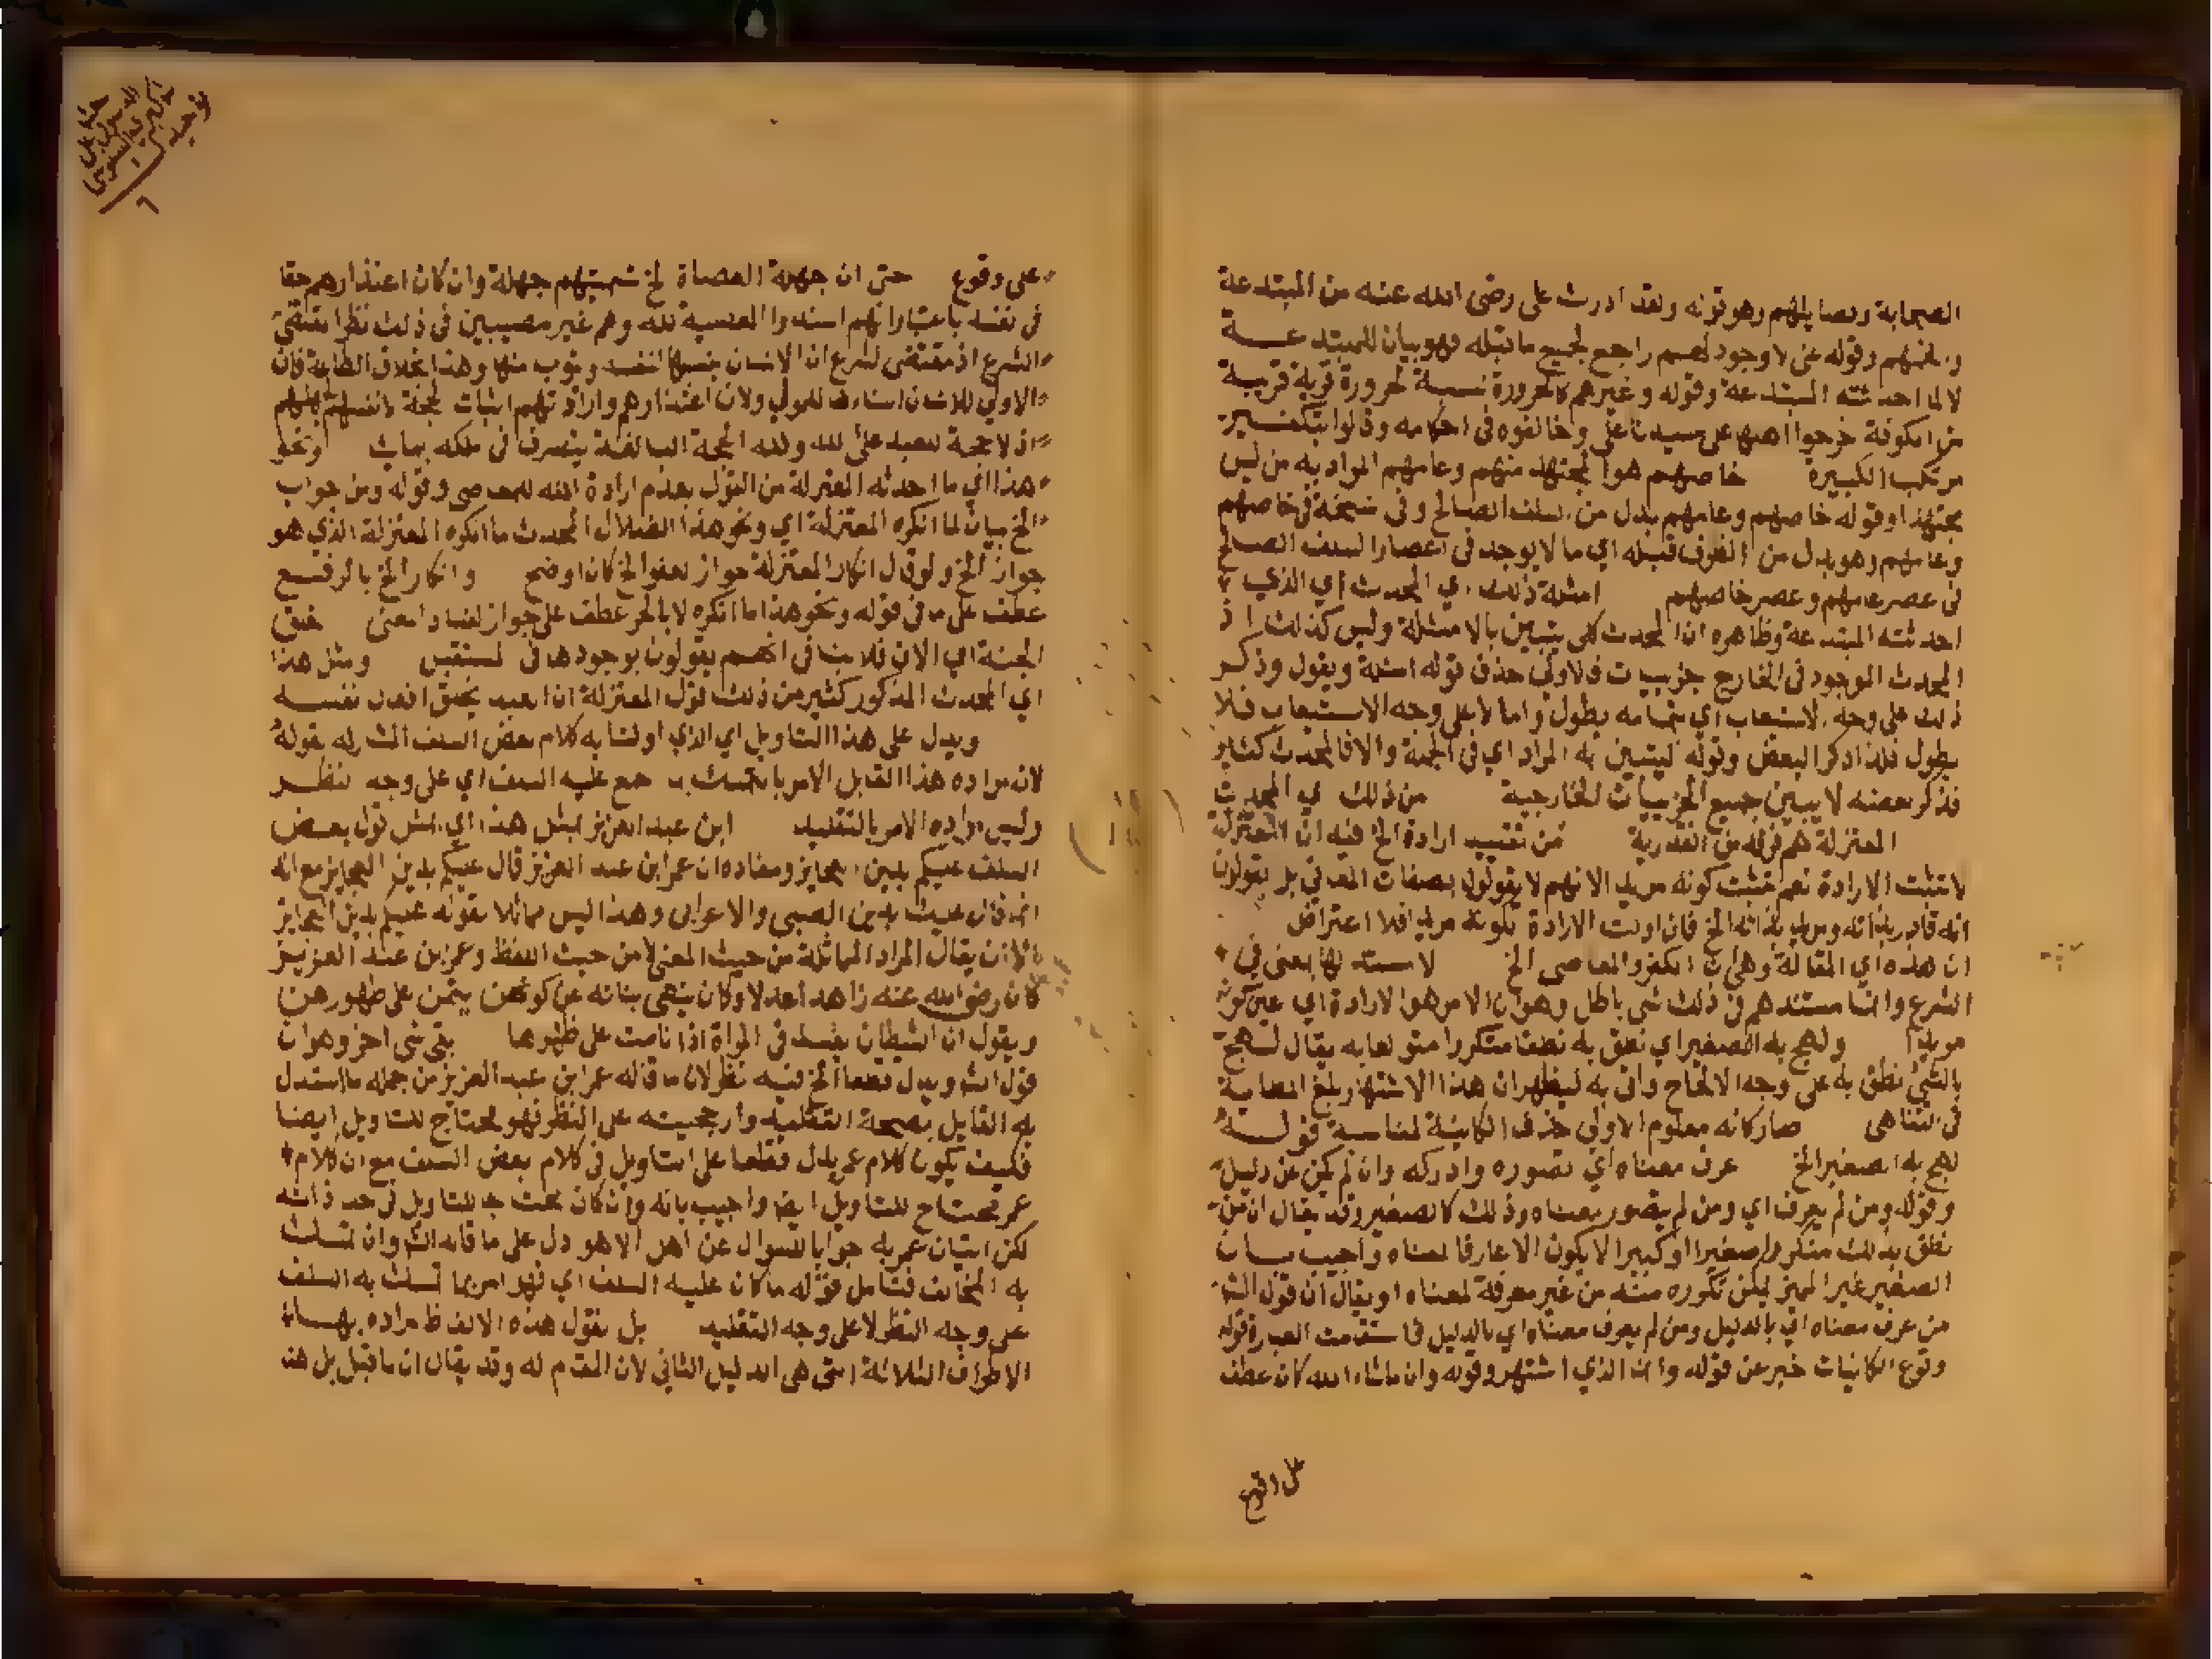 الصحابة وقوله ولقد ادرك على رضى الله عنه من المبتدعة
وقوله عن لا وجود لهم راجع لجميع ما قبله فهو بيان للمبتدعة
لا لما احدثته المبتدعة وقوله وغيرهم كالحرورة نسبة لحرورة قرية قريبة
من الكوفة خرجوا اهلها على سيدنا على وخالفوه في احكامه وقالوا بتكفير
مرتكب الكبيرة خاصهم هو المجتهد منهم وعامهم المراد به من ليس
مجتهدا وقوله خاصهم وعامهم بدل من السلف الصالح وفى نسخة في خاصهم
وعامهم وهو بدل من الظرف قبله اي ما لا يوجد فى اعصار السلف الصالح
في عصر عامهم وعصر خاصهم امثلة ذلك اي المحدث اي الذي
احدثته المبتدعة وظاهره ان المحدث كلى يتبين بالامثلة وليس كذلك اذ
المحدث الموجود فى الخارج جزييات فالاولى حذف قوله امثلة ويقول وذكر
ذلك على وجه الاستيعاب اي بتمامه يطول واما لا على وجه الاستيعاب فلا
يطول فلذا ذكر البعض وقوله ليتبين به المراد اي فى الجملة والا فالمحدث كثير
فذكر بعضه لا يبين جميع الجزييات الخارجية من ذلك اي المحدث
المعتزلة هم فرقة من القدرية من تقييد ارادة الخ فيه ان المعتزلة
لا تثبت الارادة نعم تثبت كونه مريدا لانهم لا يقولون بصفات المعاني بل يقولون
انه قادر بذاته ومريد بذاته الخ فان اولت الارادة بكونه مريدا فلا اعتراض
ان هذه اي المقالة وهى ان الكفر والمعاصى الخ لا مستند لها يعنى في
الشرع وانما مستندهم فى ذلك شى باطل وهو ان الامر هو الارادة اي عين كونه
مريدا ولهج به الصغير اي نطق به نطقا متكررا متولعا به يقال لهج
بالشئ نطق به على وجه الالحاح واتى به ليظهر ان هذا الاشتهار بلغ الغاية
فى التناهى صار كانه معلوم الاولى حذف الكانية لمناسبة قوله
لهج به الصغير الخ عرف معناه اي تصوره وادركه وان لم يكن عن دليل
وقوله ومن لم يعرف اي ومن لم يتصور معناه وذلك كالصغير وقد يقال ان من
نطق بذلك متكررا صغيرا او كبيرا لا يكون الا عارفا لمعناه واجيب بان
الصغير غير المميز يمكن تكرره منه من غير معرفة لمعناه او يقال ان قول الش
من عرف معناه اي بالدليل ومن لم يعرف معناه اي بالدليل فاستقامت العبارة قوله
وقوع الكاينات خبر عن قوله وان الذي اشتهر وقوله وان ما شاء الله كان عطف
على وقوع
على وقوع حتى ان جهلة العصاة الخ سميتهم جهلة وان كان اعتذارهم حقا
فى نفسه باعتبار انهم اسندوا المعصية لله وهم غير مصيبين فى ذلك نظرا لمقتضى
الشرع اذ مقتضى الشرع ان الانسان ينسبها لنفسه ويتوب منها وهذا بخلاف الطاعة فان
الاولى للانسان اسنادها للمولى ولان اعتذارهم وارادتهم اثبات الحجة لانفسهم
اذ لا حجة للعبد على الله ولله الحجة البالغة يتصرف فى ملكه بما شاء ونحو
هذا اي ما احدثه المعتزلة من القول بعدم ارادة الله للمعاصى وقوله ومن جواب
الخ بيان لما انكره المعتزلة اي ونحو هذا الضلال المحدث ما انكره المعتزلة الذي هو
جواز الخ ولو قال انكار المعتزلة جواز العفو الخ كان اوضح وانكار الخ بالرفع
عطف على ما فى قوله ونحو هذا ما انكره لا بالجر عطف على جواز لفساد المعنى خلق
الجنة اي الان فلا ينافى انهم يقولون بوجودها فى المستقبل ومثل هذا
اي المحدث المذكور كثير من ذلك قول المعتزلة ان العبد يخلق افعال نفسه
ويدل على هذا التاويل اي الذي اولنا به كلام بعض السلف المشار له بقوله
لان مراده هذا القايل الامر بالتمسك بما اجمع عليه السلف اي على وجه النظر
وليس مراده الامر بالتقليد ابن عبد العزيز بمثل هذا اي بمثل قول بعض
السلف عليكم بدين العجايز ومفاده ان عمر ابن عبد العزيز قال عليكم بدين العجايز مع انه
انما قال عليك بدين الصبى والاعرابى وهذا ليس مماثلا لقوله عليكم بدين العجايز
الا ان يقال المراد المماثلة من حيث المعنى لا من حيث اللفظ وعمر ابن عبد العزيز
كان رضى الله عنه زاهدا عدلا وكان ينهى بناته عن كونهن ينمن على ظهورهن
ويقول ان الشيطان يفسد فى المراة اذا نامت على ظهرها بقى شى اخر وهو ان
قول الش ويدل قطعا الخ فيه نظر لان ما قاله عمر ابن عبد العزيز من جملة ما استدل
به القايل بصحة التقليد وارجحيته على النظر فهو محتاج للتاويل ايضا
فكيف يكون كلام عمر يدل قطعا على التاويل فى كلام بعض السلف مع ان كلام
عمر محتاج للتاويل ايضا واجيب بانه وان كان محتاجا للتاويل فى حد ذاته
لكن اتيان عمر به جوابا للسوال عن اهل الاهوا دل على ما قاله الش وان تمسك
به المخالف فتامل قوله ما كان عليه السلف اي فهو امر بما تمسك به السلف
على وجه النظر لا على وجه التقليد بل نقول هذه الالفاظ مراده بها
الاطراف الثلاثة التى هى الدليل الثانى لان المقدم له وقد يقال ان ما قبل بل هنا